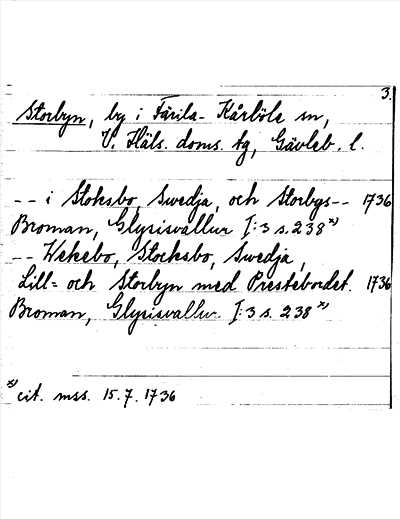 3.
Storbyn, by i Färila-Kårböle sn,
V. Häls. doms. tg, Gävleb. l.
-- i Stoksbo, Swedja, och Storbys-- 1736
Broman, Glysisvallur I:3 s. 238 x)
-- Wekebo, Stocksbo, Swedja,
Lill- och Storbyn med Prestebordet. 1736
Broman, Glysisvallur I:3 s. 238 x)
x) cit. mss. 15.7.1736